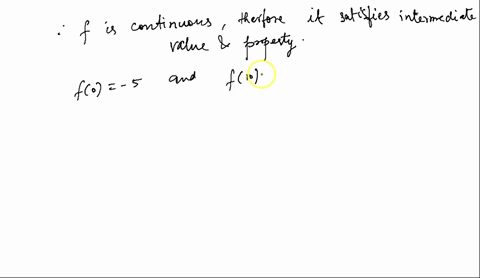 ∴ f is continuous, therfore it satisfies intermediate
value & property.
f(0) = -5 and f(10).